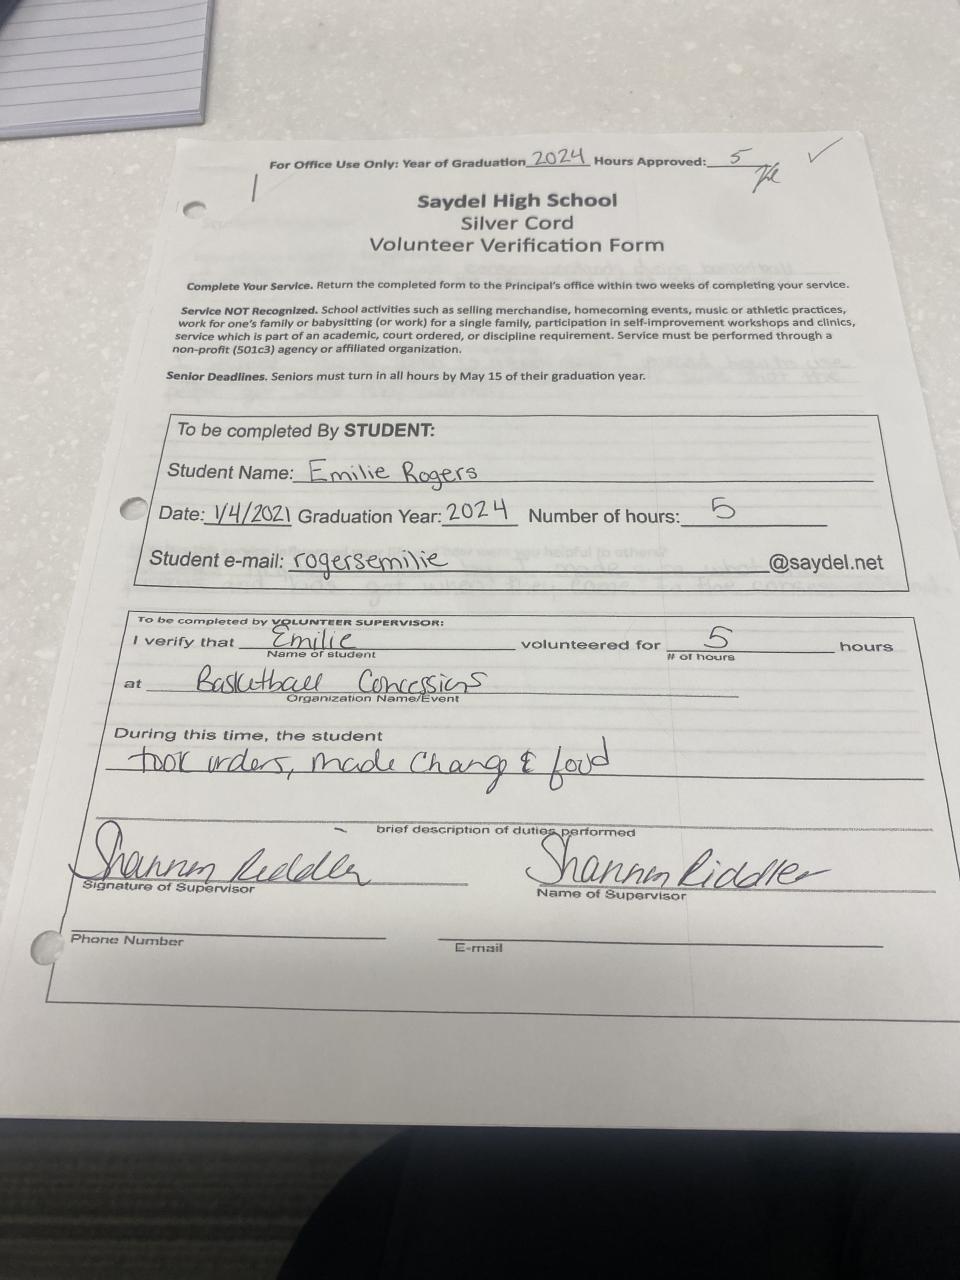 For Office Use Only: Year of Graduation 2024 Hours Approved: 5
Saydel High School
Silver Cord
Volunteer Verification Form
Complete Your Service. Return the completed form to the Principal's office within two weeks of completing your service.
Service NOT Recognized. School activities such as selling merchandise, homecoming events, music or athletic practices,
work for one's family or babysitting (or work) for a single family, participation in self-improvement workshops and clinics,
service which is part of an academic, court ordered, or discipline requirement. Service must be performed through a
non-profit (501c3) agency or affiliated organization.
Senior Deadlines. Seniors must turn in all hours by May 15 of their graduation year.
To be completed By STUDENT:
Student Name: Emilie Rogers
Date: 1/4/2021 Graduation Year: 2024 Number of hours: 5
Student e-mail: rogersemilie @saydel.net
To be completed by VOLUNTEER SUPERVISOR:
I verify that Emilie volunteered for 5 hours
Name of student # of hours
at Basketball Concessions
Organization Name/Event
During this time, the student
took orders, made Chang & food
brief description of duties performed
Shannon Riddler Shannon Riddler
Signature of Supervisor Name of Supervisor
Phone Number E-mail